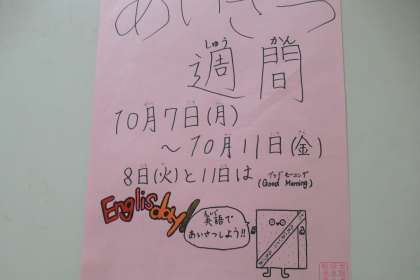 あいさつ
しゅう かん
週間
10月7日(月)
～10月11日(金)
8日(火)と11日は
グッド モーニング
(Good Morning)
English day
えいご
英語で
あいさつしよう!!